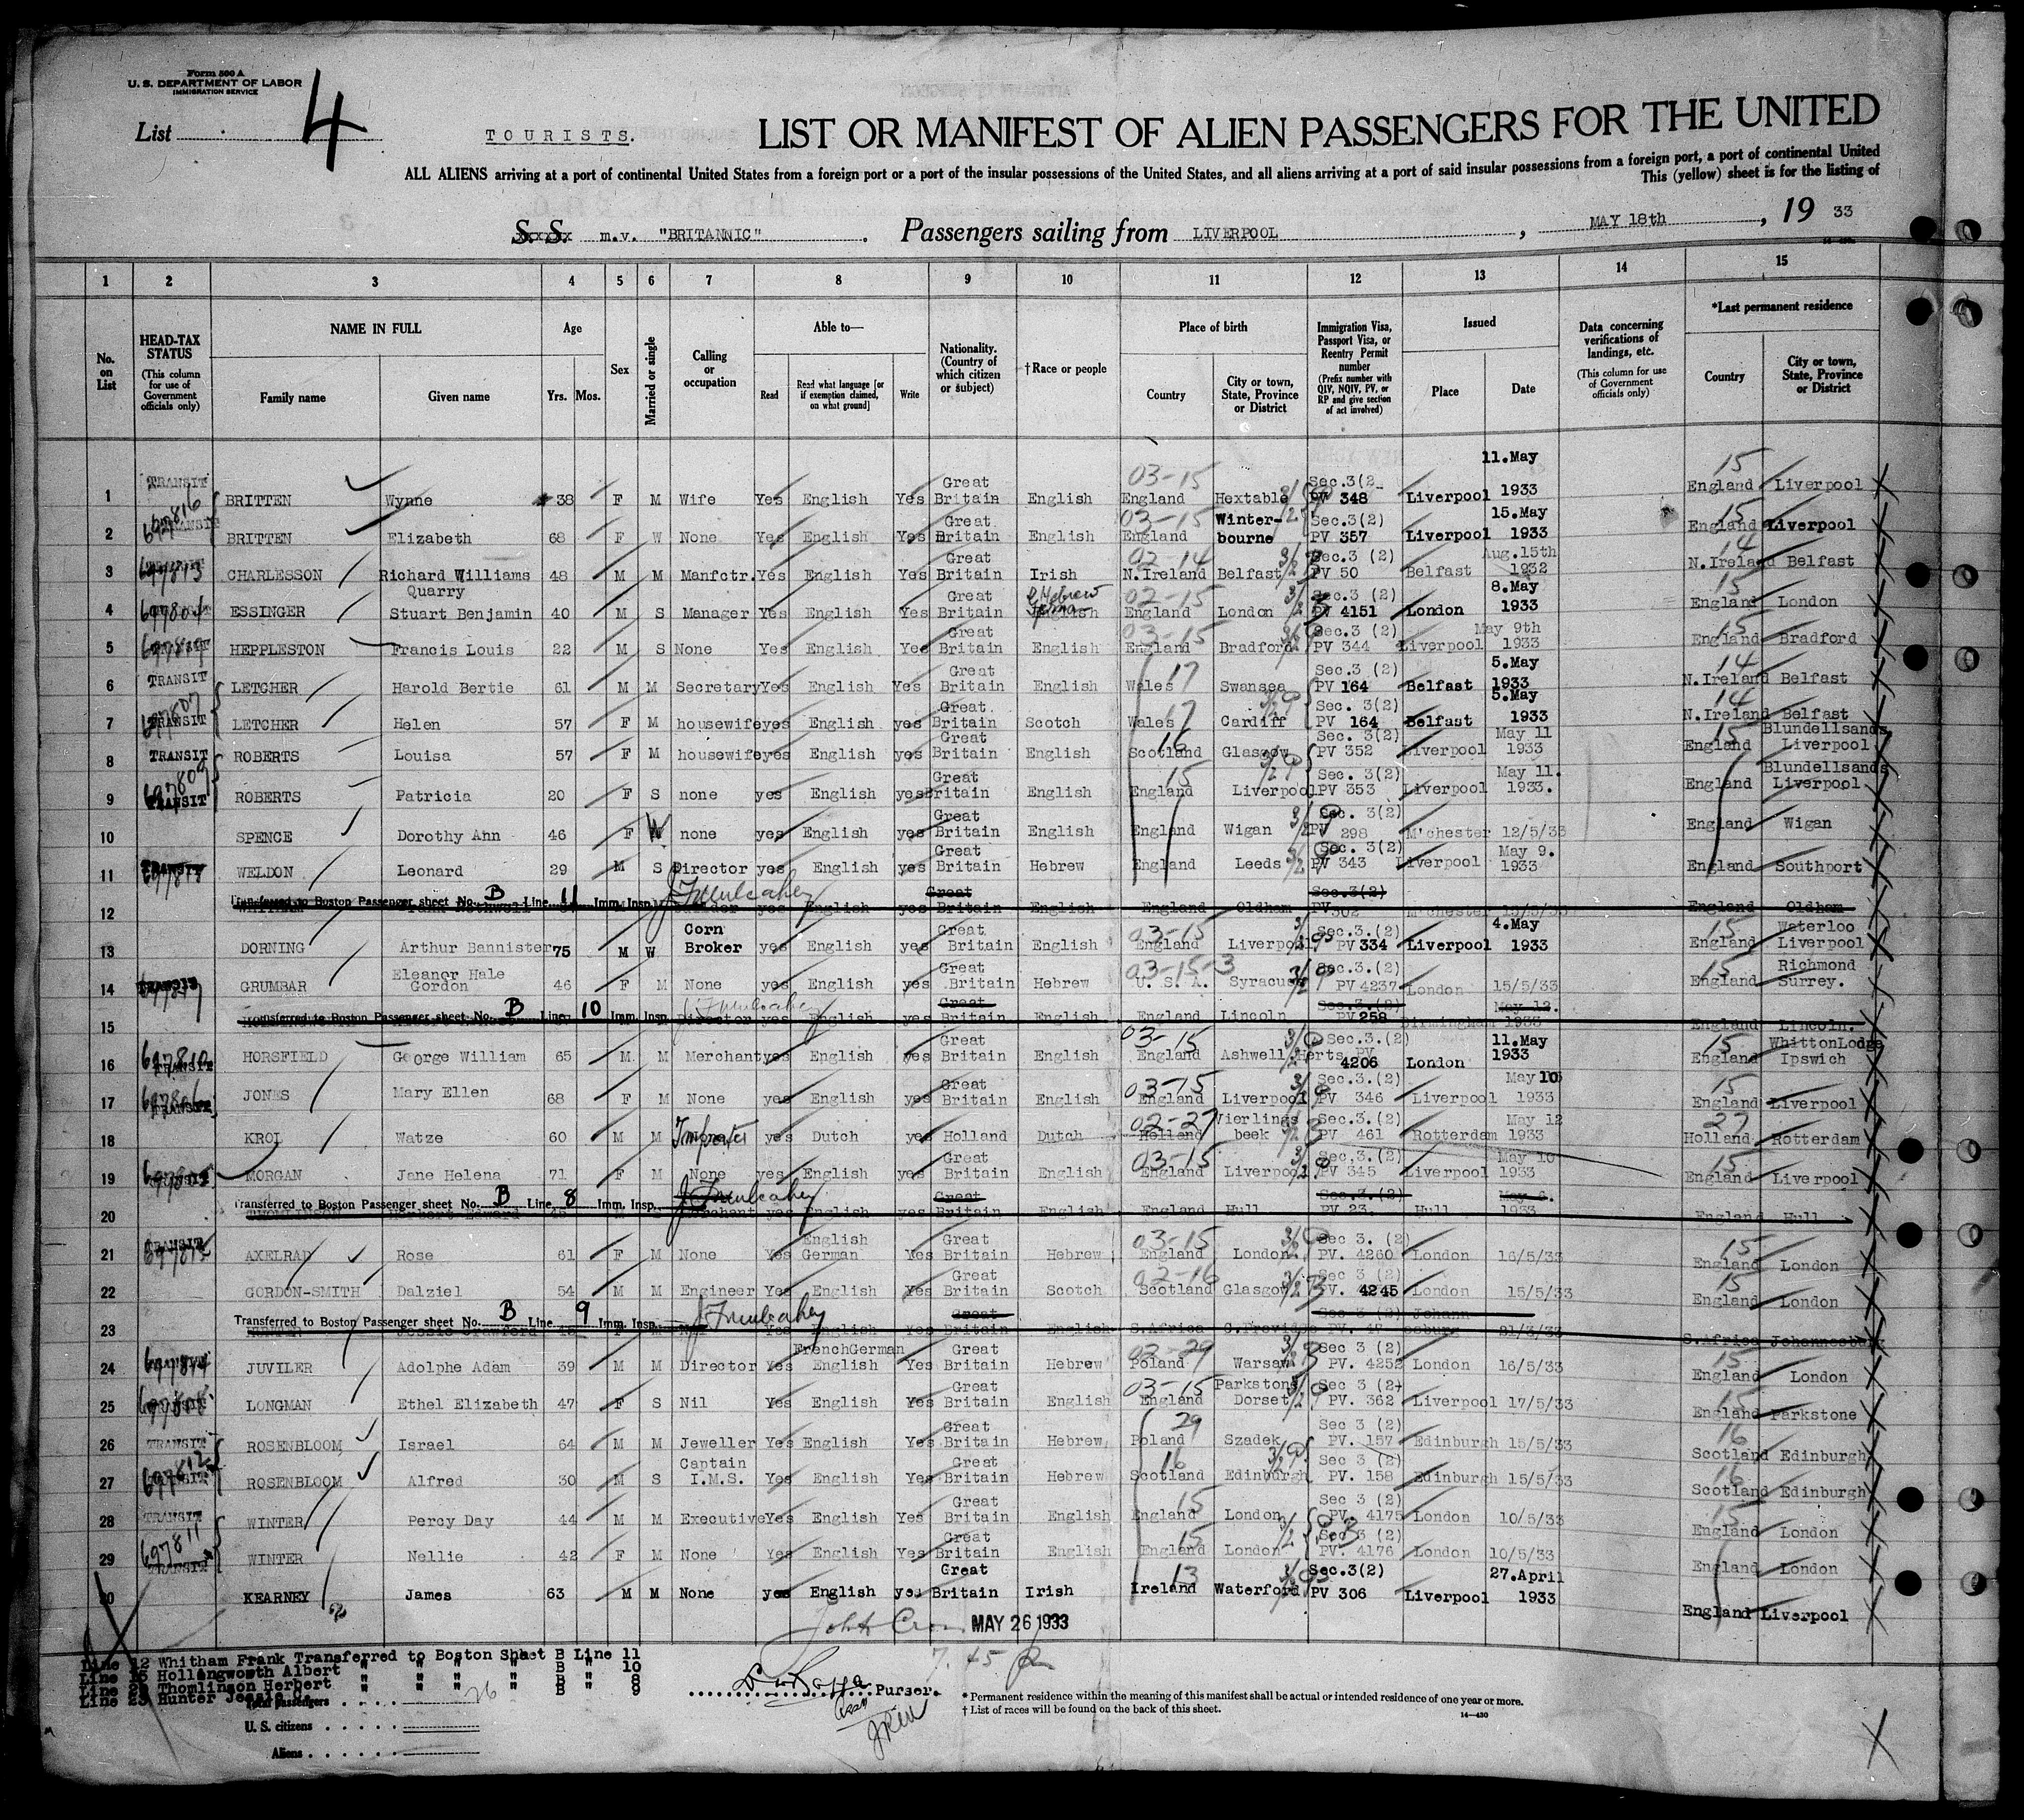 Form 500 A
U. S. DEPARTMENT OF LABOR
IMMIGRATION SERVICE
List 4
TOURISTS.
LIST OR MANIFEST OF ALIEN PASSENGERS FOR THE UNITED
ALL ALIENS arriving at a port of continental United States from a foreign port or a port of the insular possessions of the United States, and all aliens arriving at a port of said insular possessions from a foreign port, a port of continental United
This (yellow) sheet is for the listing of
S. S. m.v. "BRITANNIC" Passengers sailing from LIVERPOOL, MAY 18th, 19 33
1 2 3 4 5 6 7 8 9 10 11 12 13 14 15
No. on List
HEAD-TAX STATUS (This column for use of Government officials only)
NAME IN FULL Family name Given name
Age Yrs. Mos.
Sex
Married or single
Calling or occupation
Able to— Read Read what language [or if exemption claimed, on what ground] Write
Nationality. (Country of which citizen or subject)
†Race or people
Place of birth Country City or town, State, Province or District
Immigration Visa, Passport Visa, or Reentry Permit number (Prefix number with QIV, NQIV, PV, or RP and give section of act involved)
Issued Place Date
Data concerning verifications of landings, etc. (This column for use of Government officials only)
*Last permanent residence Country City or town, State, Province or District
1 TRANSIT BRITTEN Wynne 38 F M Wife Yes English Yes Great Britain English 03-15 England Hextable Sec.3(2 PV 348 Liverpool 11.May 1933 15 England Liverpool
2 697816 TRANSIT BRITTEN Elizabeth 68 F W None Yes English Yes Great Britain English 03-15 England Winter-bourne Sec.3(2) PV 357 Liverpool 15.May 1933 15 England Liverpool
3 697813 CHARLESSON Richard Williams Quarry 48 M M Manfctr. Yes English Yes Great Britain Irish 02-14 N.Ireland Belfast Sec.3 (2) PV 50 Belfast Aug.15th 1932 14 N.Ireland Belfast
4 ESSINGER Stuart Benjamin 40 M S Manager Yes English Yes Great Britain Hebrew English 02-15 England London Sec.3 (2) PV 4151 London 8.May 1933 15 England London
5 HEPPLESTON Francis Louis 22 M S None Yes English Yes Great Britain English 03-15 England Bradford Sec.3 (2) PV 344 Liverpool May 9th 1933 15 England Bradford
6 TRANSIT LETCHER Harold Bertie 61 M M Secretary Yes English Yes Great Britain English 17 Wales Swansea Sec.3 (2) PV 164 Belfast 5.May 1933 14 N.Ireland Belfast
7 697807 TRANSIT LETCHER Helen 57 F M housewife yes English yes Great Britain Scotch 17 Wales Cardiff Sec. 3(2) PV 164 Belfast 5.May 1933 14 N.Ireland Belfast
8 TRANSIT ROBERTS Louisa 57 F M housewife yes English yes Great Britain English 16 Scotland Glasgow Sec. 3(2) PV 352 Liverpool May 11 1933 15 England Blundellsands Liverpool
9 697809 TRANSIT ROBERTS Patricia 20 F S none yes English yes Great Britain English 15 England Liverpool Sec. 3(2) PV 353 Liverpool May 11. 1933. England Blundellsands Liverpool
10 SPENCE Dorothy Ann 46 F W none yes English yes Great Britain English England Wigan Sec. 3(2) PV 298 M'chester 12/5/33 England Wigan
11 TRANSIT WELDON Leonard 29 M S Director yes English yes Great Britain Hebrew England Leeds Sec. 3(2) PV 343 Liverpool May 9. 1933 England Southport
Transferred to Boston Passenger sheet No. B Line 11 Imm. Insp. J F Mulcahey
12 yes English yes Great Britain English England Oldham Sec.3(2) PV 302 M'chester 15/5/33 England Oldham
13 DORNING Arthur Bannister 75 M W Corn Broker yes English yes Great Britain English 03-15 England Liverpool Sec.3.(2) PV 334 Liverpool 4.May 1933 15 England Waterloo Liverpool
14 TRANSIT GRUMBAR Eleanor Hale Gordon 46 F M None yes English yes Great Britain Hebrew 03-15-3 U. S. A. Syracuse Sec.3.(2) PV 4237 London 15/5/33 15 England Richmond Surrey.
Transferred to Boston Passenger sheet No. B Line 10 Imm. Insp. J F Mulcahey
15 Director yes English yes Great Britain English England Lincoln Sec.3.(2) PV 258 Birmingham May 12. 1933 England Lincoln.
16 697810 TRANSIT HORSFIELD George William 65 M M Merchant yes English yes Great Britain English 03-15 England Ashwell Herts Sec.3.(2) PV 4206 London 11.May 1933 15 England WhittonLodge Ipswich
17 697806 TRANSIT JONES Mary Ellen 68 F M None yes English yes Great Britain English 03-15 England Liverpool Sec.3.(2) PV 346 Liverpool May 10 1933 15 England Liverpool
18 KROL Watze 60 M M Importer yes Dutch yes Holland Dutch 02-27 Holland Vierlings beek Sec.3.(2) PV 461 Rotterdam May 12 1933 27 Holland Rotterdam
19 697805 MORGAN Jane Helena 71 F M None yes English yes Great Britain English 03-15 England Liverpool Sec.3.(2) PV 345 Liverpool May 10 1933 15 England Liverpool
Transferred to Boston Passenger sheet No. B Line 8 Imm. Insp. J F Mulcahey
20 THOMLINSON Herbert Edward Merchant yes English yes Great Britain English England Hull Sec.3.(2) PV 23. Hull 1933 England Hull
21 TRANSIT AXELRAD Rose 61 F M None Yes English German Yes Great Britain Hebrew 03-15 England London Sec 3. (2) PV. 4260 London 16/5/33 15 England London
22 GORDON-SMITH Dalziel 54 M M Engineer Yes English Yes Great Britain Scotch 02-16 Scotland Glasgow Sec 3 (2) PV. 4245 London 15/5/33 15 England London
Transferred to Boston Passenger sheet No. B Line 9 Imm. Insp. J F Mulcahey
23 HUNTER Jessie Crawford F M Nil Yes English Yes Great Britain English S.Africa Sec 3 (2) PV. 47 Johannesburg 21/3/33 S.Africa Johannesburg
24 JUVILER Adolphe Adam 39 M M Director Yes FrenchGerman English Yes Great Britain Hebrew 02-29 Poland Warsaw Sec 3 (2) PV. 4252 London 16/5/33 15 England London
25 LONGMAN Ethel Elizabeth 47 F S Nil Yes English Yes Great Britain English 03-15 England Parkstone Dorset Sec 3 (2) PV. 362 Liverpool 17/5/33 15 England Parkstone
26 TRANSIT ROSENBLOOM Israel 64 M M Jeweller Yes English Yes Great Britain Hebrew 29 Poland Szadek Sec 3 (2) PV. 157 Edinburgh 15/5/33 16 Scotland Edinburgh
27 697812 ROSENBLOOM Alfred 30 M S Captain I.M.S. Yes English Yes Great Britain Hebrew 16 Scotland Edinburgh Sec 3 (2) PV. 158 Edinburgh 15/5/33 16 Scotland Edinburgh
28 TRANSIT WINTER Percy Day 44 M M Executive Yes English Yes Great Britain English 15 England London Sec 3 (2) PV. 4175 London 10/5/33 15 England London
29 697811 TRANSIT WINTER Nellie 42 F M None Yes English Yes Great Britain English 15 England London Sec 3 (2) PV. 4176 London 10/5/33 England London
30 KEARNEY James 63 M M None yes English yes Great Britain Irish 13 Ireland Waterford Sec.3(2) PV 306 Liverpool 27.April 1933 England Liverpool
MAY 26 1933
7.45
Line 12 Whitham Frank Transferred to Boston Sheet B Line 11
Line 15 Hollingworth Albert " " " B " 10
Line 20 Thomlinson Herbert " " " B " 8
Line 23 Hunter Jessie C. " " " B " 9
Total passengers 26
U. S. citizens
Aliens
Purser.
* Permanent residence within the meaning of this manifest shall be actual or intended residence of one year or more.
† List of races will be found on the back of this sheet.
14—430